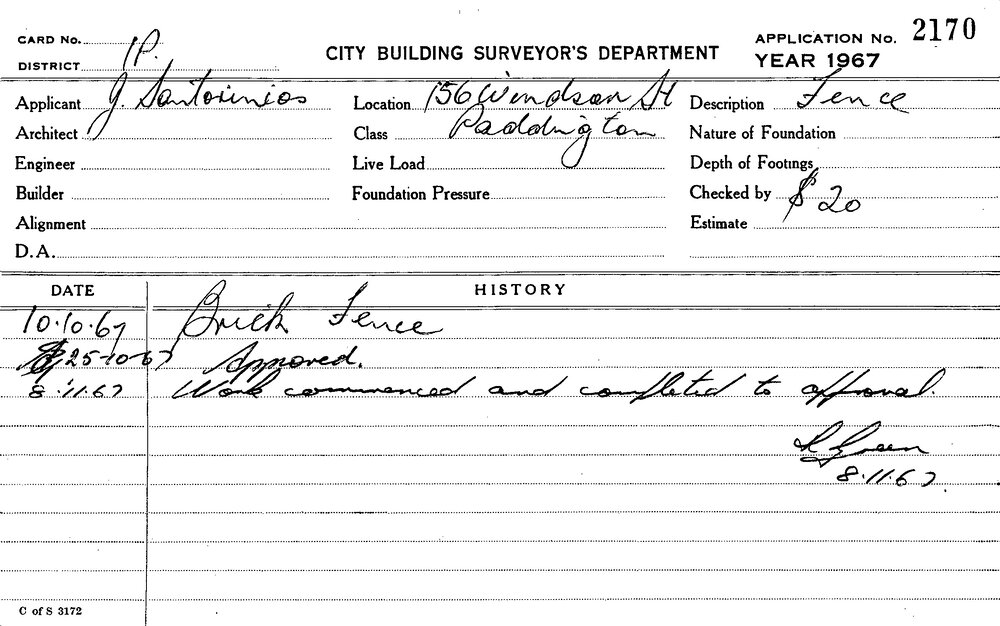 CARD No. 1P.
DISTRICT
CITY BUILDING SURVEYOR'S DEPARTMENT
APPLICATION No. 2170
YEAR 1967
Applicant J. Santorinios Location 156 Windsor St Description Fence
Architect Class Paddington Nature of Foundation
Engineer Live Load Depth of Footings
Builder Foundation Pressure Checked by $20
Alignment Estimate
D.A.
DATE HISTORY
10.10.67 Brick Fence
25-10-67 Approved.
8.11.67 Work commenced and completed to approval.
Green
8.11.67.
C of S 3172